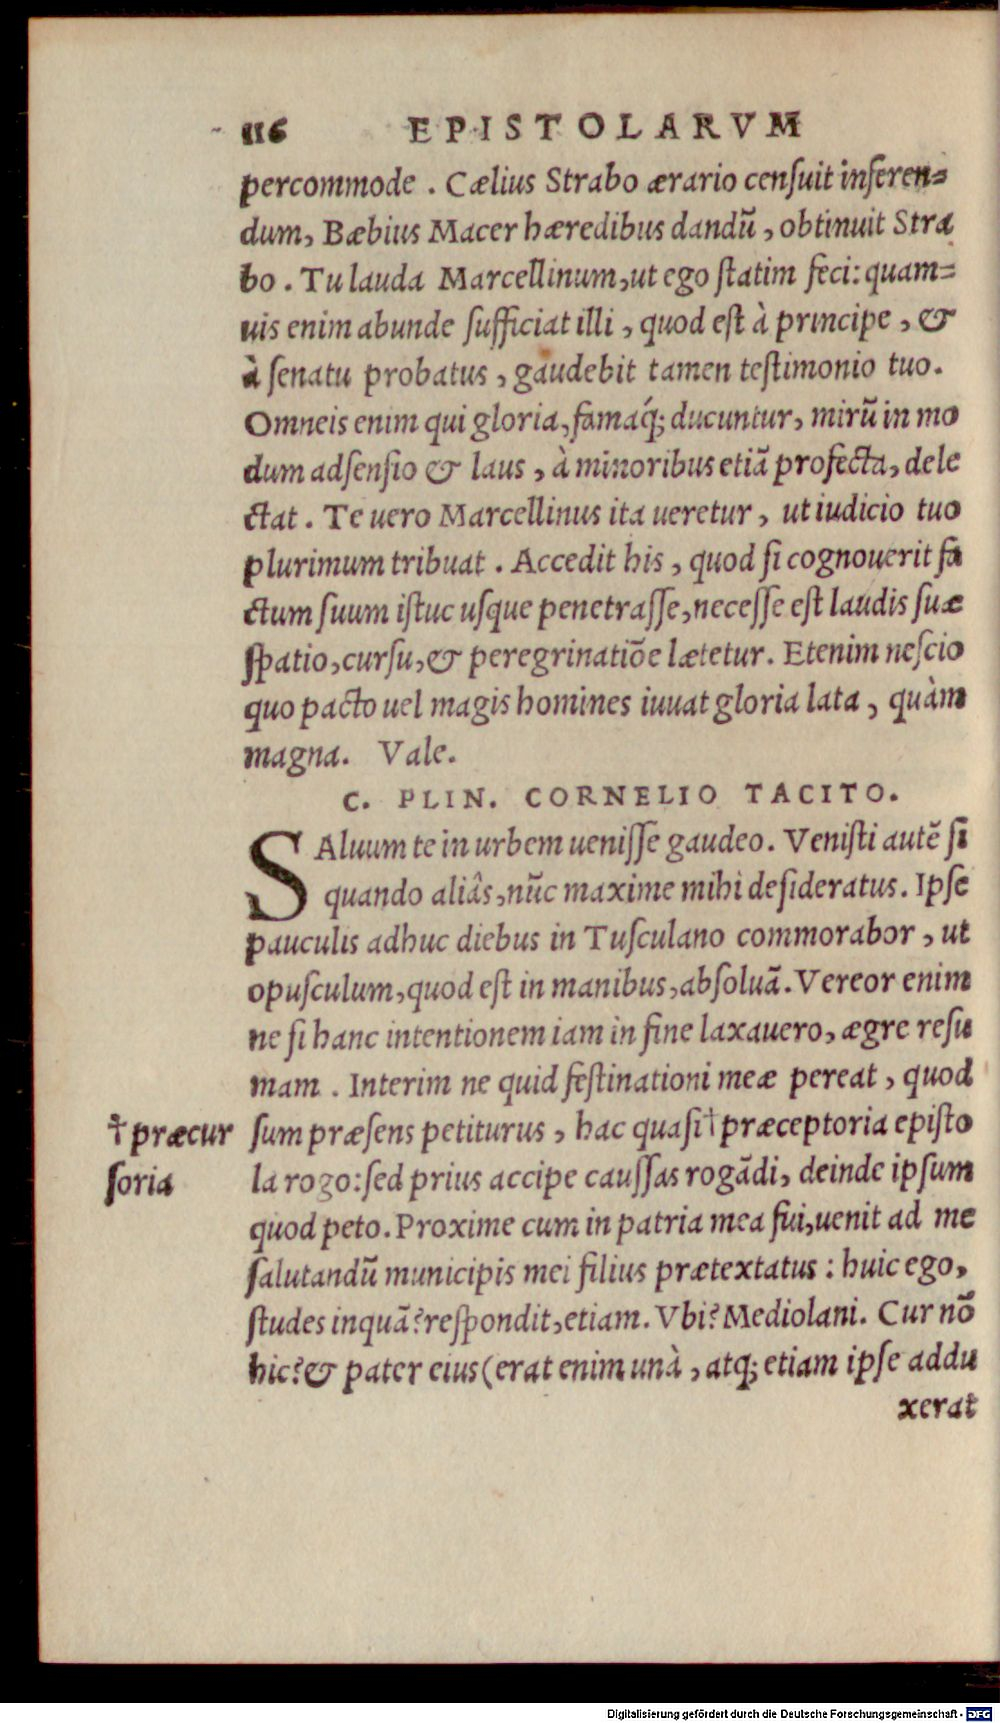 116 EPISTOLARVM
percommode . Cælius Strabo ærario cenſuit inferen=
dum, Bæbius Macer hæredibus dandũ, obtinuit Stra
bo. Tu lauda Marcellinum, ut ego ſtatim feci: quam=
uis enim abunde ſufficiat illi, quod eſt à principe, &
à ſenatu probatus, gaudebit tamen teſtimonio tuo.
Omneis enim qui gloria, famaq́; ducuntur, mirũ in mo
dum adſenſio & laus, à minoribus etiã profecta, dele
ctat. Te uero Marcellinus ita ueretur, ut iudicio tuo
plurimum tribuat. Accedit his, quod ſi cognouerit fa
ctum ſuum iſtuc uſque penetraſſe, neceſſe eſt laudis ſuæ
ſpatio, curſu, & peregrinatiõe lætetur. Etenim neſcio
quo pacto uel magis homines iuuat gloria lata, quàm
magna. Vale.
C. PLIN. CORNELIO TACITO.
SAluum te in urbem ueniſſe gaudeo. Veniſti autẽ ſi
quando aliâs, nũc maxime mihi deſideratus. Ipſe
pauculis adhuc diebus in Tuſculano commorabor, ut
opuſculum, quod eſt in manibus, abſoluã. Vereor enim
ne ſi hanc intentionem iam in fine laxauero, ægre reſu
mam. Interim ne quid feſtinationi meæ pereat, quod
ſum præſens petiturus, hac quaſi † præceptoria epiſto
† præcur
ſoria
la rogo: ſed prius accipe cauſſas rogãdi, deinde ipſum
quod peto. Proxime cum in patria mea fui, uenit ad me
ſalutandũ municipis mei filius prætextatus: huic ego,
ſtudes inquã? reſpondit, etiam. Vbi? Mediolani. Cur nõ
hic? & pater eius (erat enim unà, atq; etiam ipſe addu
xerat
Digitalisierung gefördert durch die Deutsche Forschungsgemeinschaft - DFG